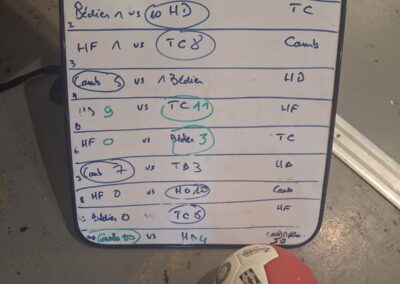 Bédier 1 vs 10 HD TC
2
HF 1 vs TC 8 Camb
3
Camb 5 vs 1 Bédier HD
4
9 vs TC 11 HF
5
6 HF 0 vs Bédier 3 TC
7 Camb 7 vs TD 3 HD
8 HF 0 vs HD 10 Camb
Bédier 0 vs TC 6 HF
Camb 10 vs HD 4